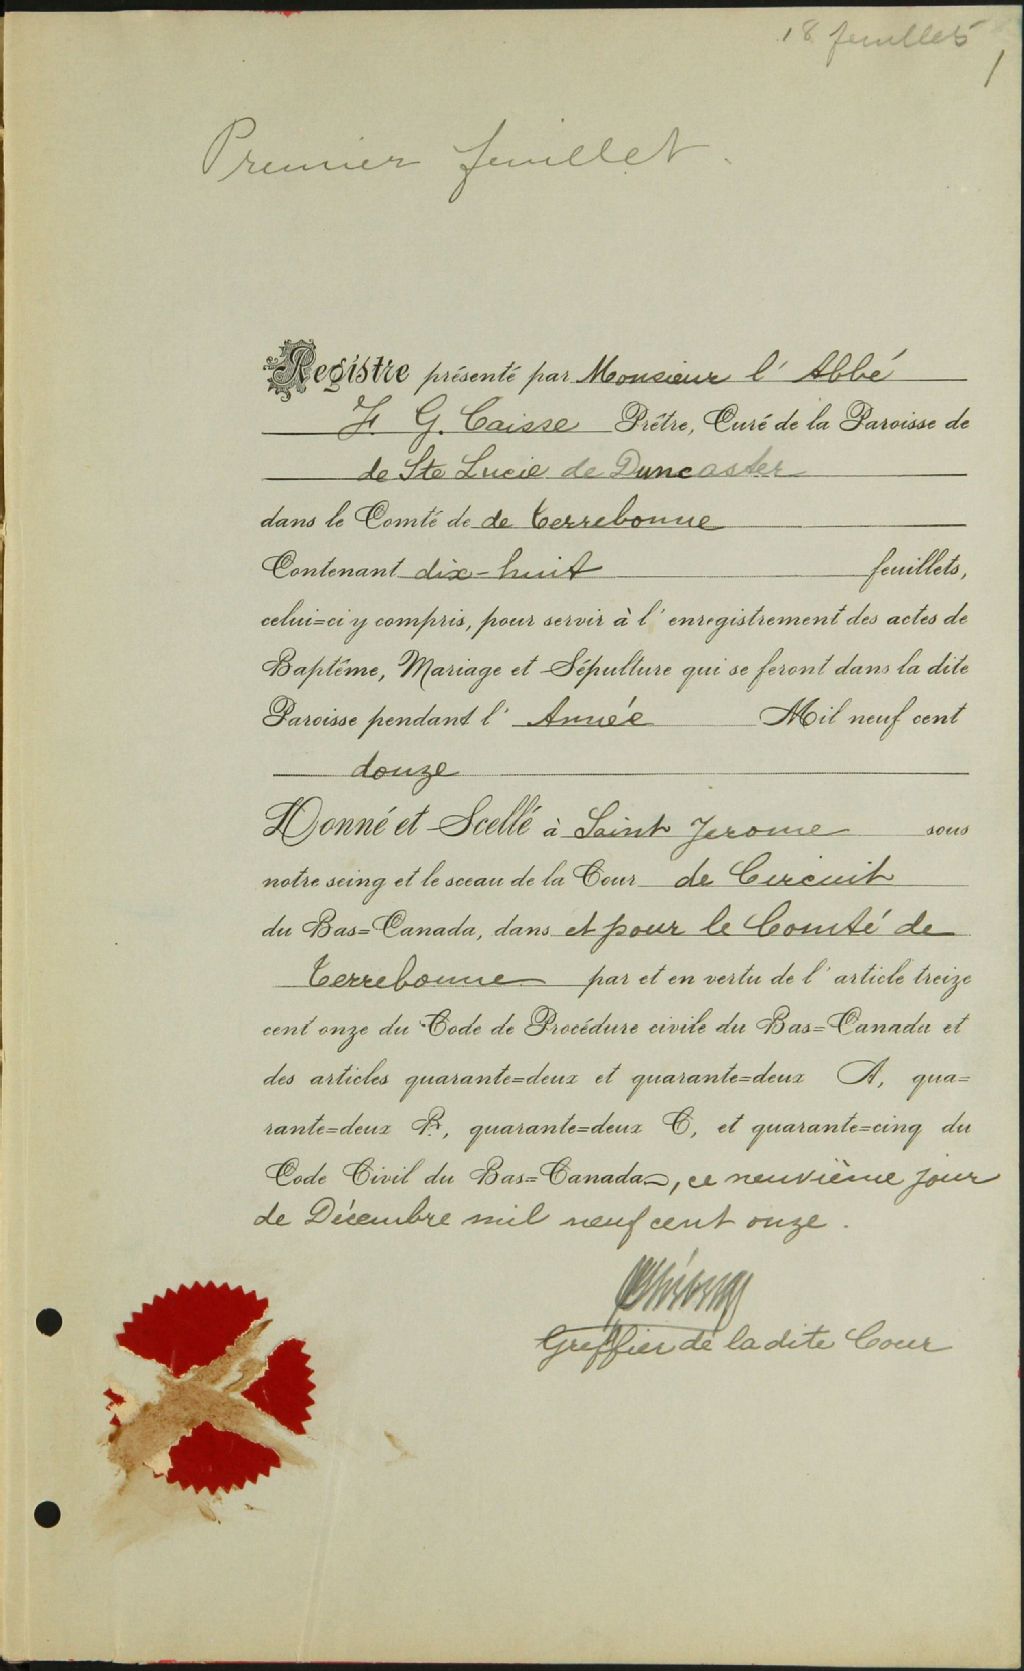 18 feuillets
1
Premier feuillet.
Registre présenté par Monsieur l' Abbé
F. G. Caisse Prêtre, Curé de la Paroisse de
de Ste Lucie de Duncaster
dans le Comté de de Terrebonne
Contenant dix-huit feuillets,
celui=ci y compris, pour servir à l' enregistrement des actes de
Baptême, Mariage et Sépulture qui se feront dans la dite
Paroisse pendant l' Année Mil neuf cent
douze
Donné et Scellé à Saint Jerome sous
notre seing et le sceau de la Cour de Circuit
du Bas=Canada, dans et pour le Comté de
Terrebonne par et en vertu de l' article treize
cent onze du Code de Procédure civile du Bas=Canada et
des articles quarante=deux et quarante=deux A, qua=
rante=deux B, quarante=deux C, et quarante=cinq du
Code Civil du Bas=Canada, ce neuvième jour
de Décembre mil neuf cent onze.
Greffier de la dite Cour